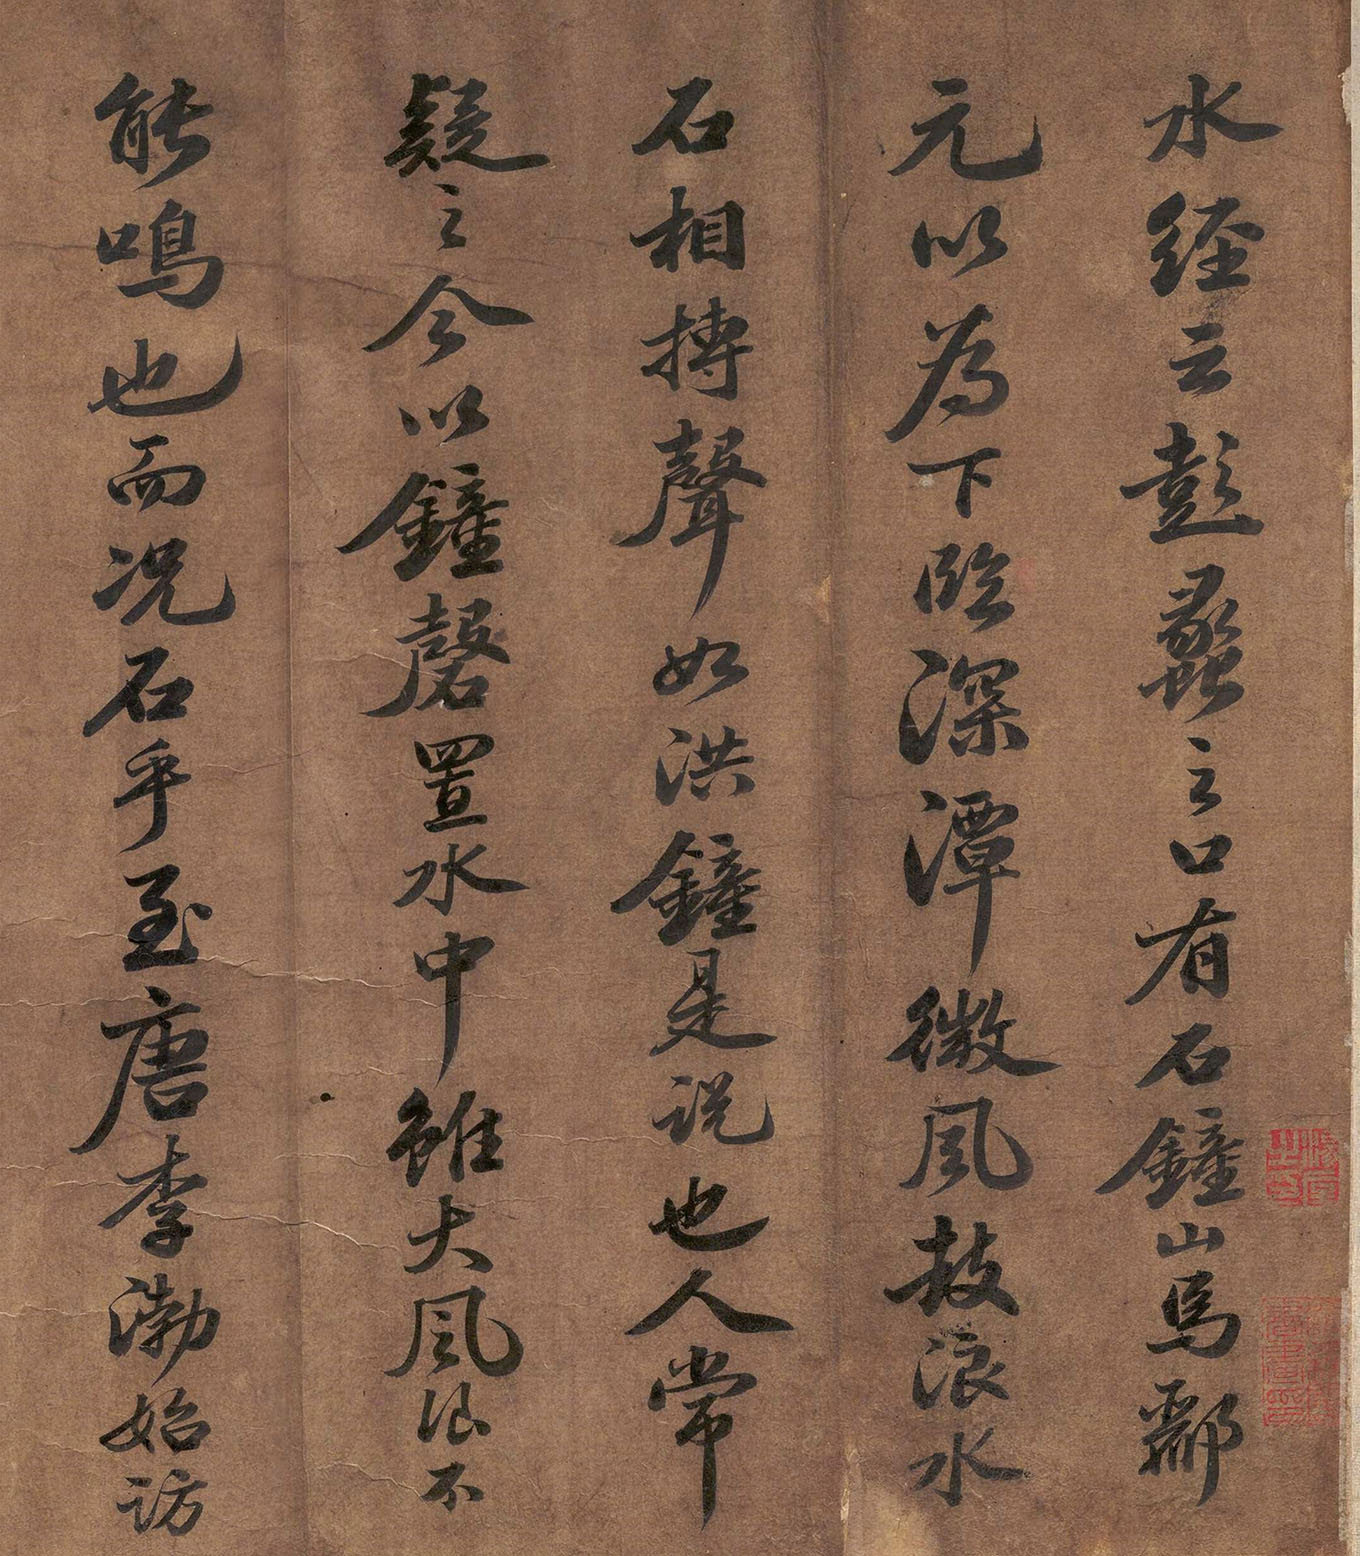 水經云彭蠡之口有石鐘山焉酈
元以為下臨深潭微風鼓浪水
石相搏聲如洪鐘是說也人常
疑之今以鐘磬置水中雖大風浪不
能鳴也而況石乎至唐李渤始訪